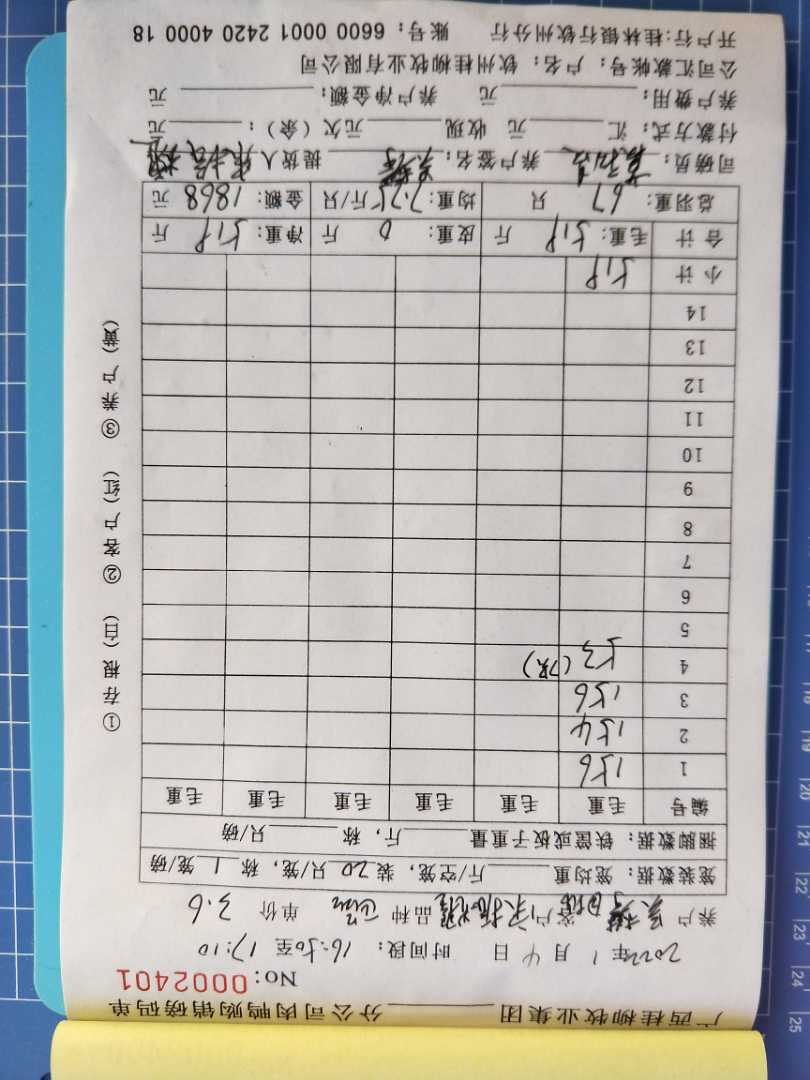 广西桂柳牧业集团 分公司肉鸭购销磅码单
No: 0002401
2022年 1 月 4 日 时间段: 16:50至 17:10
养户 客户 品种 单价 3.6
笼装数据: 笼均重 斤/空笼, 装 20 只/笼, 称 1 笼/磅
捆脚数据: 铁筐或板子重量 斤, 称 只/磅
编号 毛重 毛重 毛重 毛重 毛重
1 156
2 154
3 156
4 53
5
6
7
8
9
10
11
12
13
14
小计 519
合计 毛重: 519 斤 皮重: 0 斤 净重: 519 斤
总羽重: 67 只 均重: 7.75 斤/只 金额: 1868 元
司磅员: 养户签名: 提货人
付款方式: 汇 元 收现 元欠(余): 元
养户费用: 元 养户净金额: 元
公司汇款帐号: 户名: 钦州桂柳牧业有限公司
开户行:桂林银行钦州分行 账号: 6600 0001 2420 4000 18
①存根(白) ②客户(红) ③养户(黄)
21
22
23
24
25